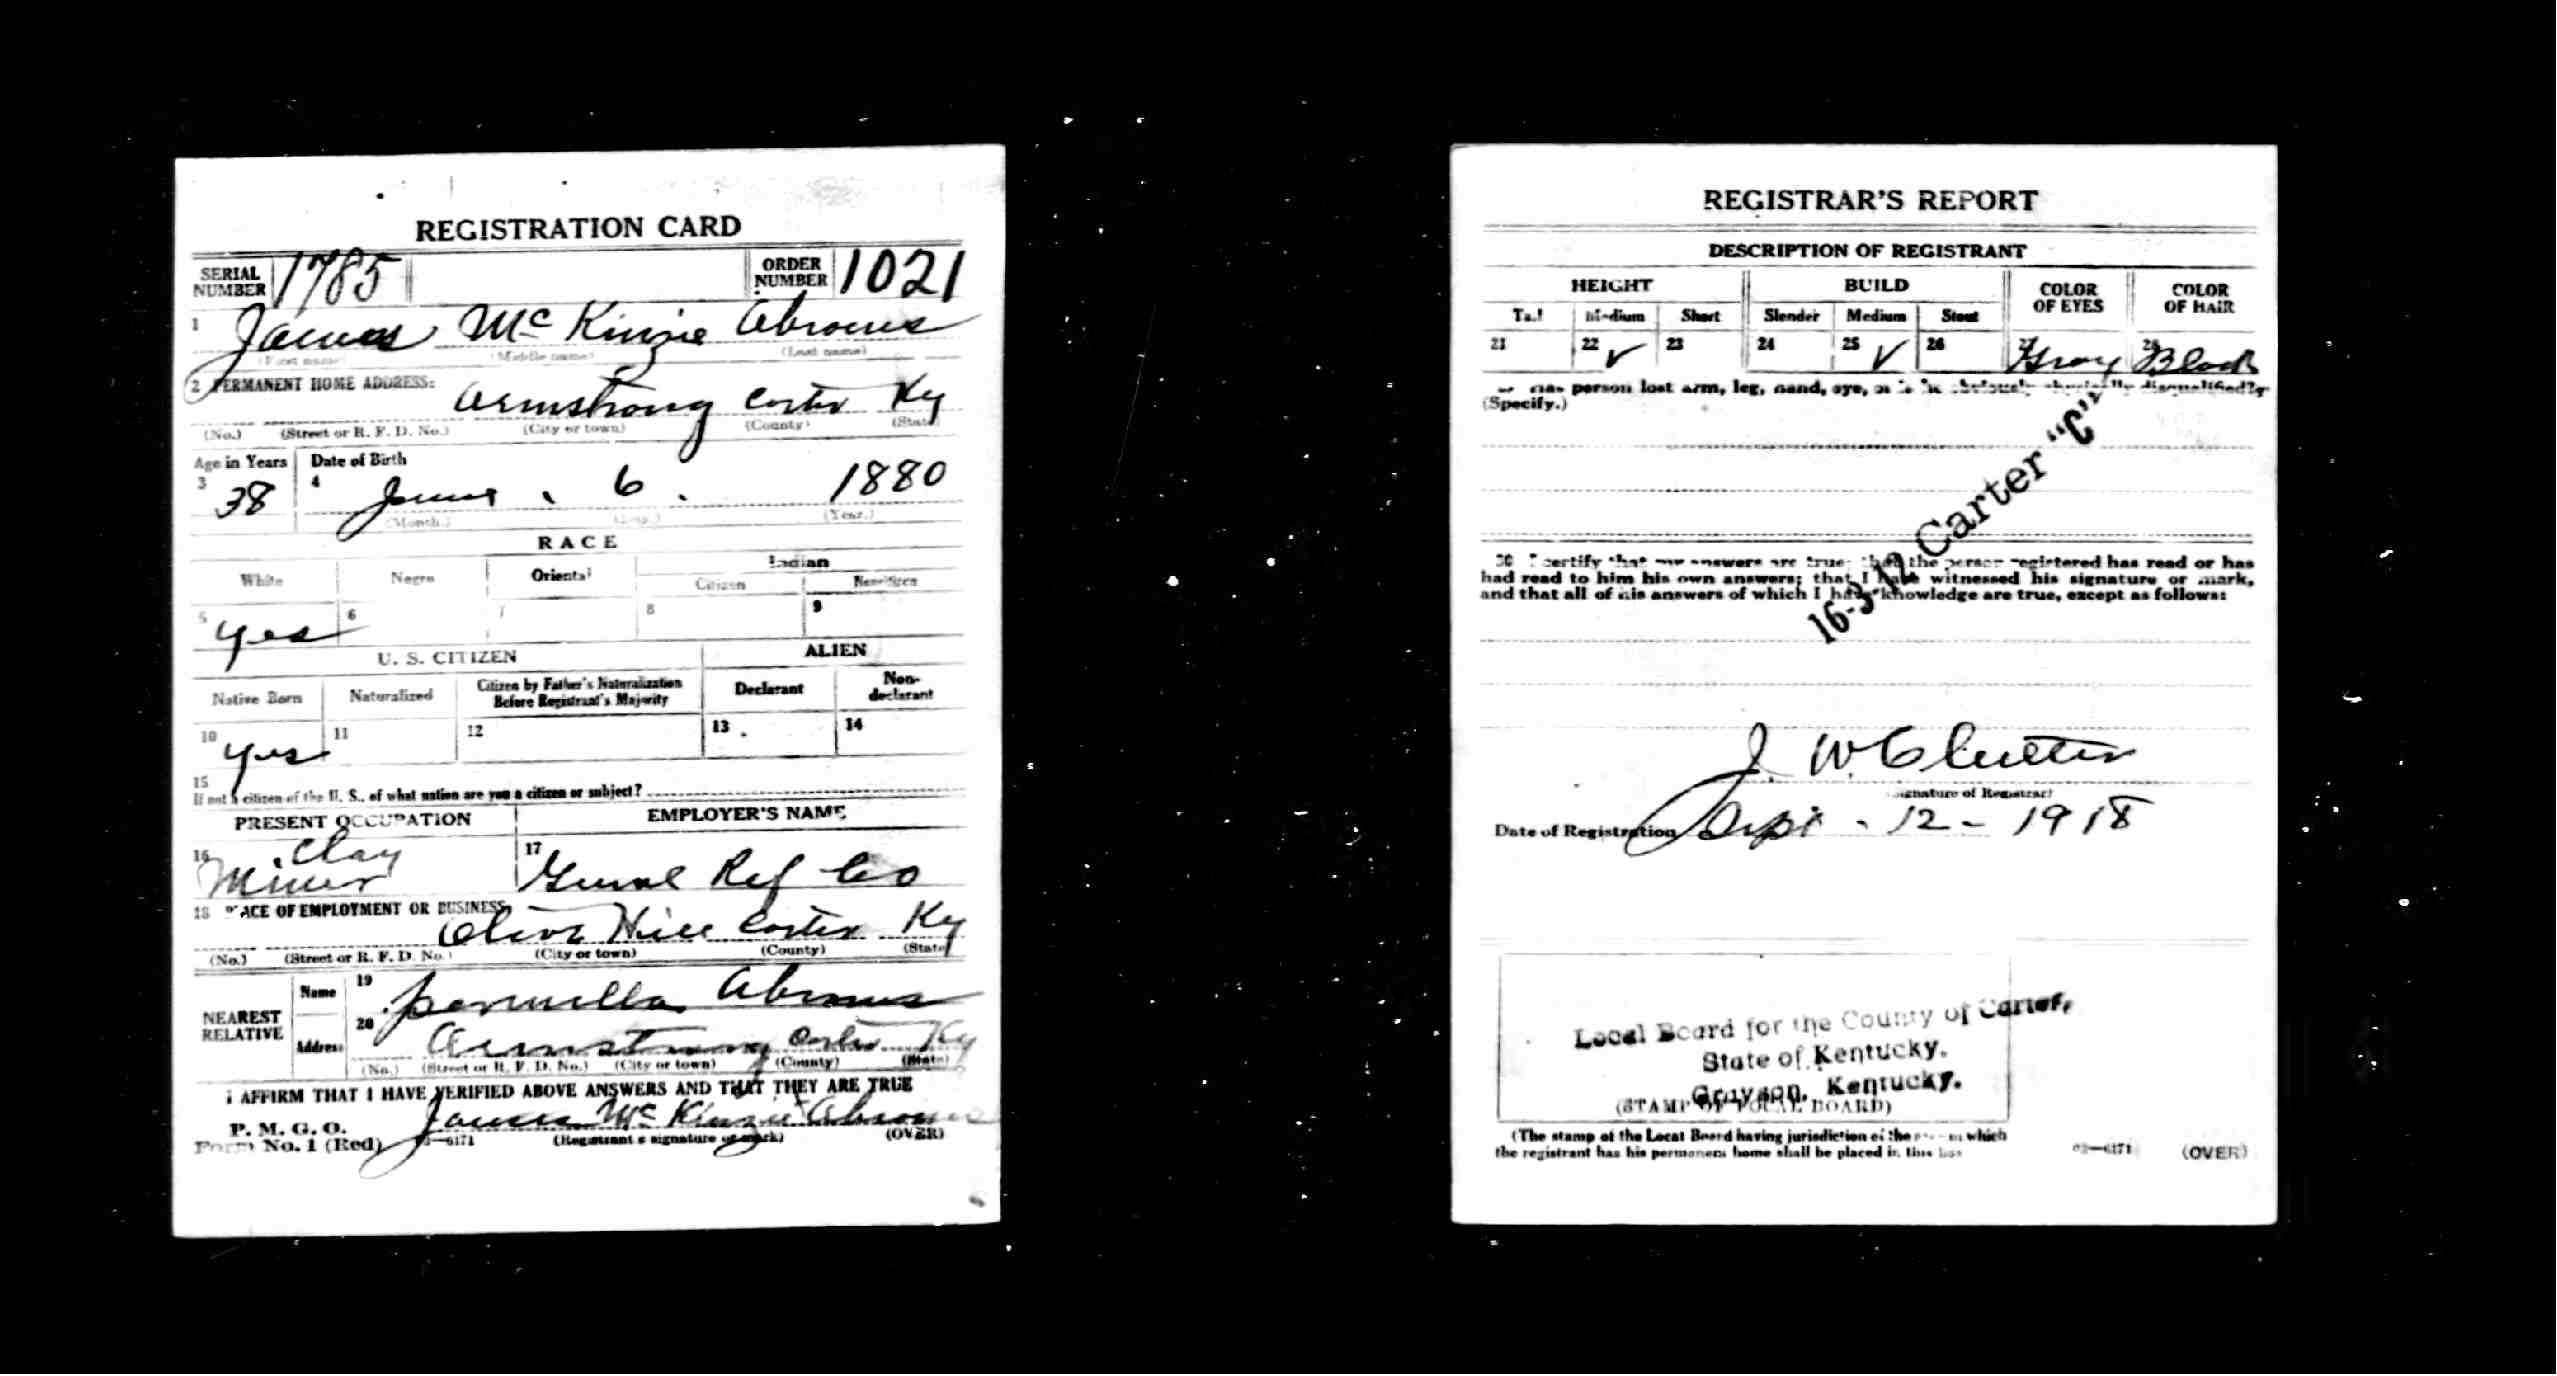 REGISTRATION CARD
SERIAL NUMBER 1785 ORDER NUMBER 1021
1 James McKinzie Abrams
(First name) (Middle name) (Last name)
2 PERMANENT HOME ADDRESS:
Armstrong Carter Ky
(No.) (Street or R. F. D. No.) (City or town) (County) (State)
Age in Years Date of Birth
3 38 4 6 . 1880
(Month.) (Day.) (Year.)
RACE
White Negro Oriental Indian
Citizen Noncitizen
5 Yes 6 7 8 9
U. S. CITIZEN ALIEN
Native Born Naturalized Citizen by Father's Naturalization Before Registrant's Majority Declarant Non-declarant
10 Yes 11 12 13 14
15
If not a citizen of the U. S., of what nation are you a citizen or subject?
PRESENT OCCUPATION EMPLOYER'S NAME
16 Clay Miner 17 Ref Co
18 PLACE OF EMPLOYMENT OR BUSINESS
Olive Hill Carter Ky
(No.) (Street or R. F. D. No.) (City or town) (County) (State)
NEAREST RELATIVE
Name 19 Abrams
Address 20 Armstrong Carter Ky
(No.) (Street or R. F. D. No.) (City or town) (County) (State)
I AFFIRM THAT I HAVE VERIFIED ABOVE ANSWERS AND THAT THEY ARE TRUE
P. M. G. O.
Form No. 1 (Red) 03—6171 James McKinzie Abrams
(Registrant's signature or mark) (OVER)
REGISTRAR'S REPORT
DESCRIPTION OF REGISTRANT
HEIGHT BUILD COLOR OF EYES COLOR OF HAIR
Tall Medium Short Slender Medium Stout
21 22 ✓ 23 24 25 ✓ 26 27 Gray 28 Black
Has person lost arm, leg, hand, eye, or is he obviously physically disqualified?
(Specify.)
16-3-12 Carter "C"
30 I certify that my answers are true; that the person registered has read or has
had read to him his own answers; that I have witnessed his signature or mark,
and that all of his answers of which I have knowledge are true, except as follows:
J. W. Clutter
(Signature of Registrar)
Date of Registration Sept - 12 - 1918
Local Board for the County of Carter,
State of Kentucky.
Grayson, Kentucky.
(STAMP OF LOCAL BOARD)
(The stamp of the Local Board having jurisdiction of the area in which
the registrant has his permanent home shall be placed in this box
03—6171 (OVER)